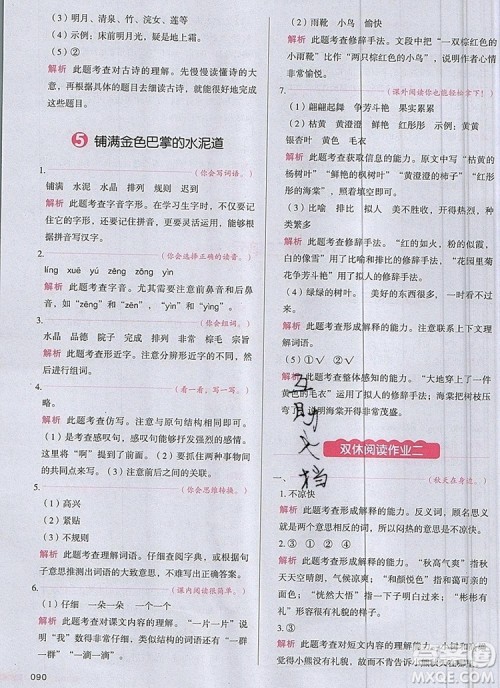 (3) 明月、竹、浣女、莲
(4) 示例：床前明月光，疑是地上霜。
(5) ②
解析 此题考查对古诗的理解。先慢慢读懂诗的大意，再根据题目的要求去细读古诗，就能完成这些题目。
⑤ 铺满金色巴掌的水泥道
1. (你会写词语。)
铺满 水泥 水晶 排列 规则 迟到
解析 此题考查字音字形。学习生字时，不仅要记住它的字形，还要记住它的读音，这样才能根据拼音写汉字。
2. (你会选择正确的读音。)
líng xuē yú zēng yìn
解析 此题考查字音。尤其要注意前鼻音和后鼻音，如“zēng”和“zēn”、“yìn”和“yìng”。
3. (你会组词。)
水晶 品德 院子 完成 排列 非常 棕毛 宗旨
解析 此题考查形近字。注意分辨形近字的偏旁，再进行组词。
4. (看一看，写一写。)
略。
解析 此题考查仿写。注意与原句结构要一致。(1) 是考查感叹句，感叹句能够增强语气，引起共鸣。(2) 是考查拟人句，写句子时要写出两个事物的共同点。
5. (你会思维转换。)
(1) 高兴
(2) 紧贴
(3) 不规则
解析 此题考查理解词语。仔细查阅字典，或者根据句意思考词语的意思，再写出意思相近的词语。
6. (课内阅读很简单。)
(1) 仔细 一朵一朵 一个一个
解析 此题考查对课文内容的理解。“一片一片”说明“我”数得非常认真。类似的词语还有“一群一群”“一滴一滴”。
090
(2) 雨靴 小鸟 愉快
解析 此题考查修辞手法。文段中把“一双棕红色的小雨靴”比作“两只棕红色的小鸟”，说明作者心情非常愉快。
7. (课外阅读你也能轻松拿下！)
(1) 翩翩起舞 争芳斗艳 果实累累
(2) 枯黄 黄澄澄 鲜艳 红彤彤 示例：黄黄的银杏叶 黄黄的蜜橘
解析 此题考查短语搭配。原文中写到了“枯黄的树叶”“鲜艳的枫树叶”“黄澄澄的柿子”“红彤彤的海棠”等短语，可以根据原文来写。
(3) 比喻 排比 拟人 枫叶很红 海棠开得热烈，种类多
解析 此题考查修辞手法。“红的如火，像一面小旗，像晚霞，像燃烧的火焰”，这句话运用了比喻和排比的修辞手法，“花园里菊花争芳斗艳”运用了拟人的修辞手法。
(4) 绿绿的树叶。 美好，使人向往的。
解析 此题考查形成解释的能力。注意联系上下文理解词语。
(5) ①√ ②√
解析 此题考查整体感知的能力。“大地穿上了一件黄色的毛衣”运用了拟人的修辞手法；海棠把树枝压弯了，说明海棠开得非常茂盛。
互助文档
双休阅读作业二
一、 (秋天在身边。)
1. 不凉快
解析 此题考查形成解释的能力。反义词，顾名思义就是词语的意思相反，所以闷热的意思就是不凉快。
2. ③ ① ② ④
解析 此题考查形成解释的能力。“秋高气爽”指秋天天空晴朗，天气凉爽；“和颜悦色”指的是和蔼可亲的面容；“恍然大悟”指一下子明白过来；“彬彬有礼”形容很有礼貌的样子。